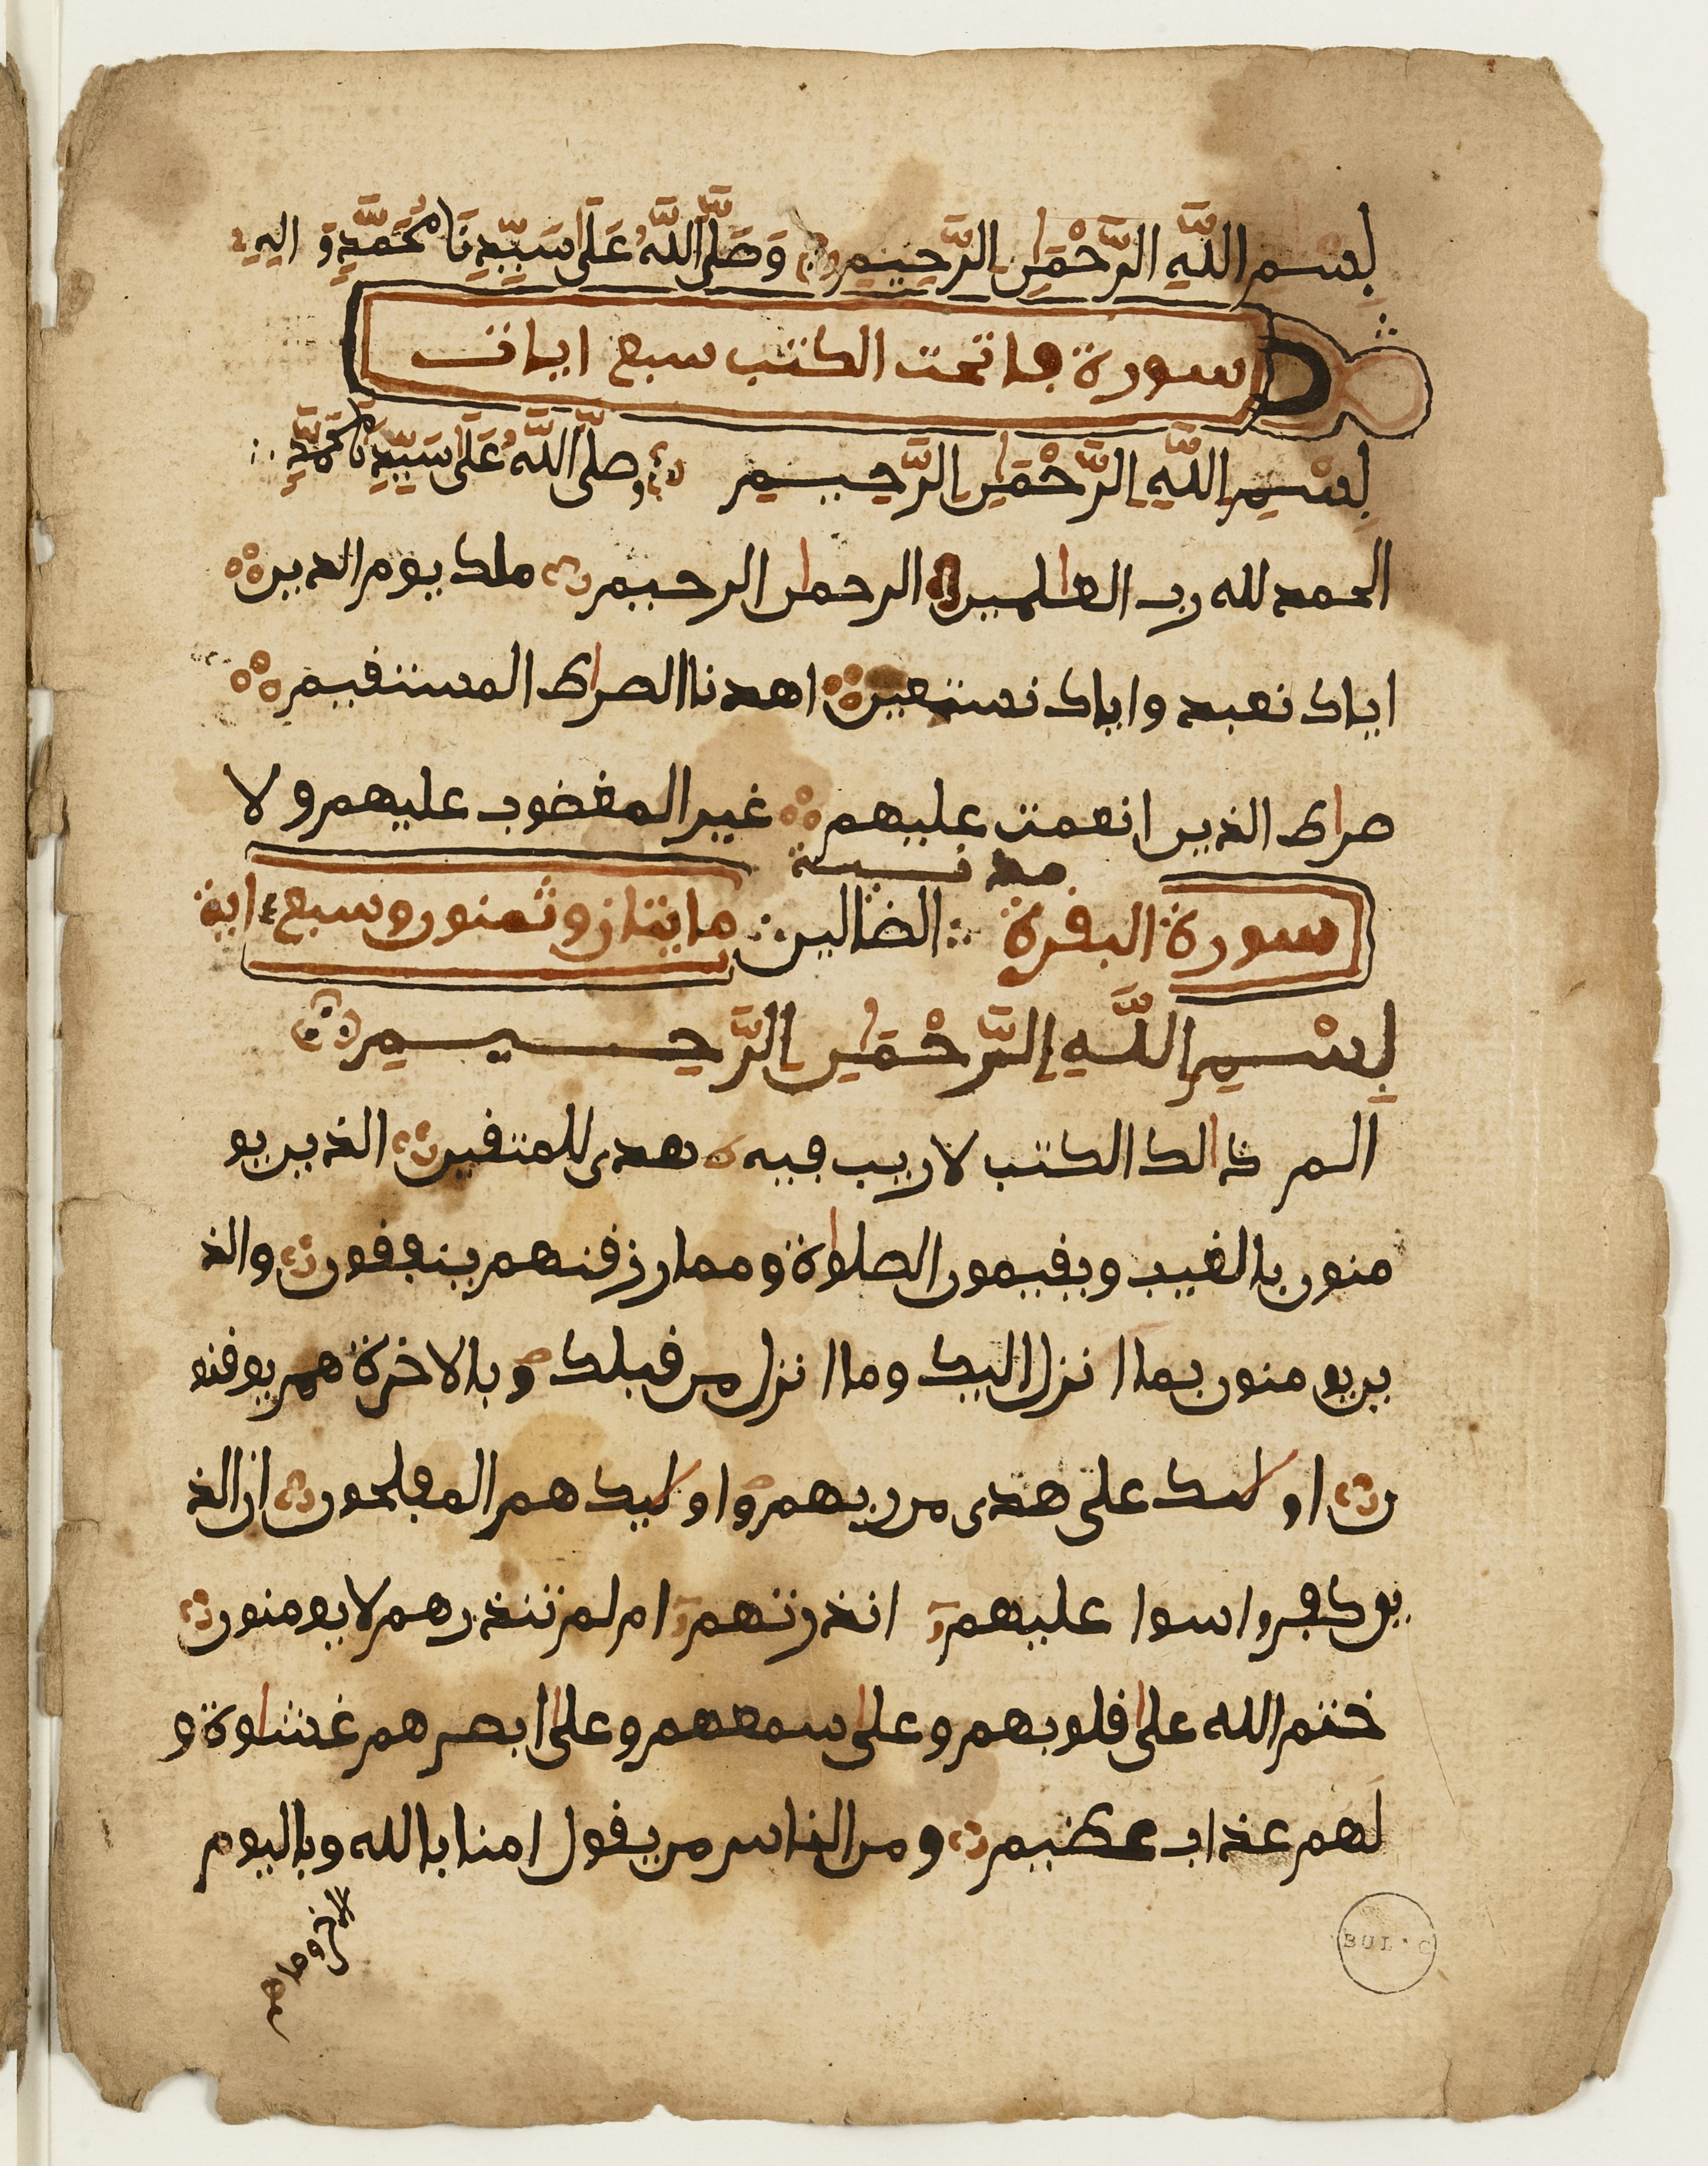 بِسْمِ اللَّهِ الرَّحْمَٰنِ الرَّحِيمِ وَصَلَّى اللَّهُ عَلَى سَيِّدِنَا مُحَمَّدٍ وَ اليه
سورة فاتحت الكتب سبع ايات
بِسْمِ اللَّهِ الرَّحْمَٰنِ الرَّحِيمِ وصلَّى اللَّهُ عَلَى سَيِّدِنَا مُحَمَّدٍ
الحمد لله رب العلمين الرحمن الرحيم ملك يوم الدين
اياك نعبد واياك نستعين اهدنا الصراط المستفيم
صراط الذين انعمت عليهم غير المغضوب عليهم ولا
مدنية
سورة البفرة الضالين مايتان وثمنون وسبع اية
بِسْمِ اللَّهِ الرَّحْمَٰنِ الرَّحِيمِ
الم ذالك الكتب لا ريب فيه هدى للمتفين الذين يو
منون بالغيب ويفيمون الصلواة ومما رزفنهم ينففون والذ
ين يومنون بما انزل اليك وما انزل من فبلك وبالاخرة هم يوفنو
ن اوليك على هدى من ربهم واوليك هم المفلحون ان الذ
ين كفروا سوا عليهم انذرتهم ام لم تنذرهم لا يومنون
ختم الله على فلوبهم وعلى سمعهم وعلى ابصرهم غشاوة و
لهم عذاب عظيم ومن الناس من يفول امنا بالله وباليوم
الاخر وما هم
BUL. C